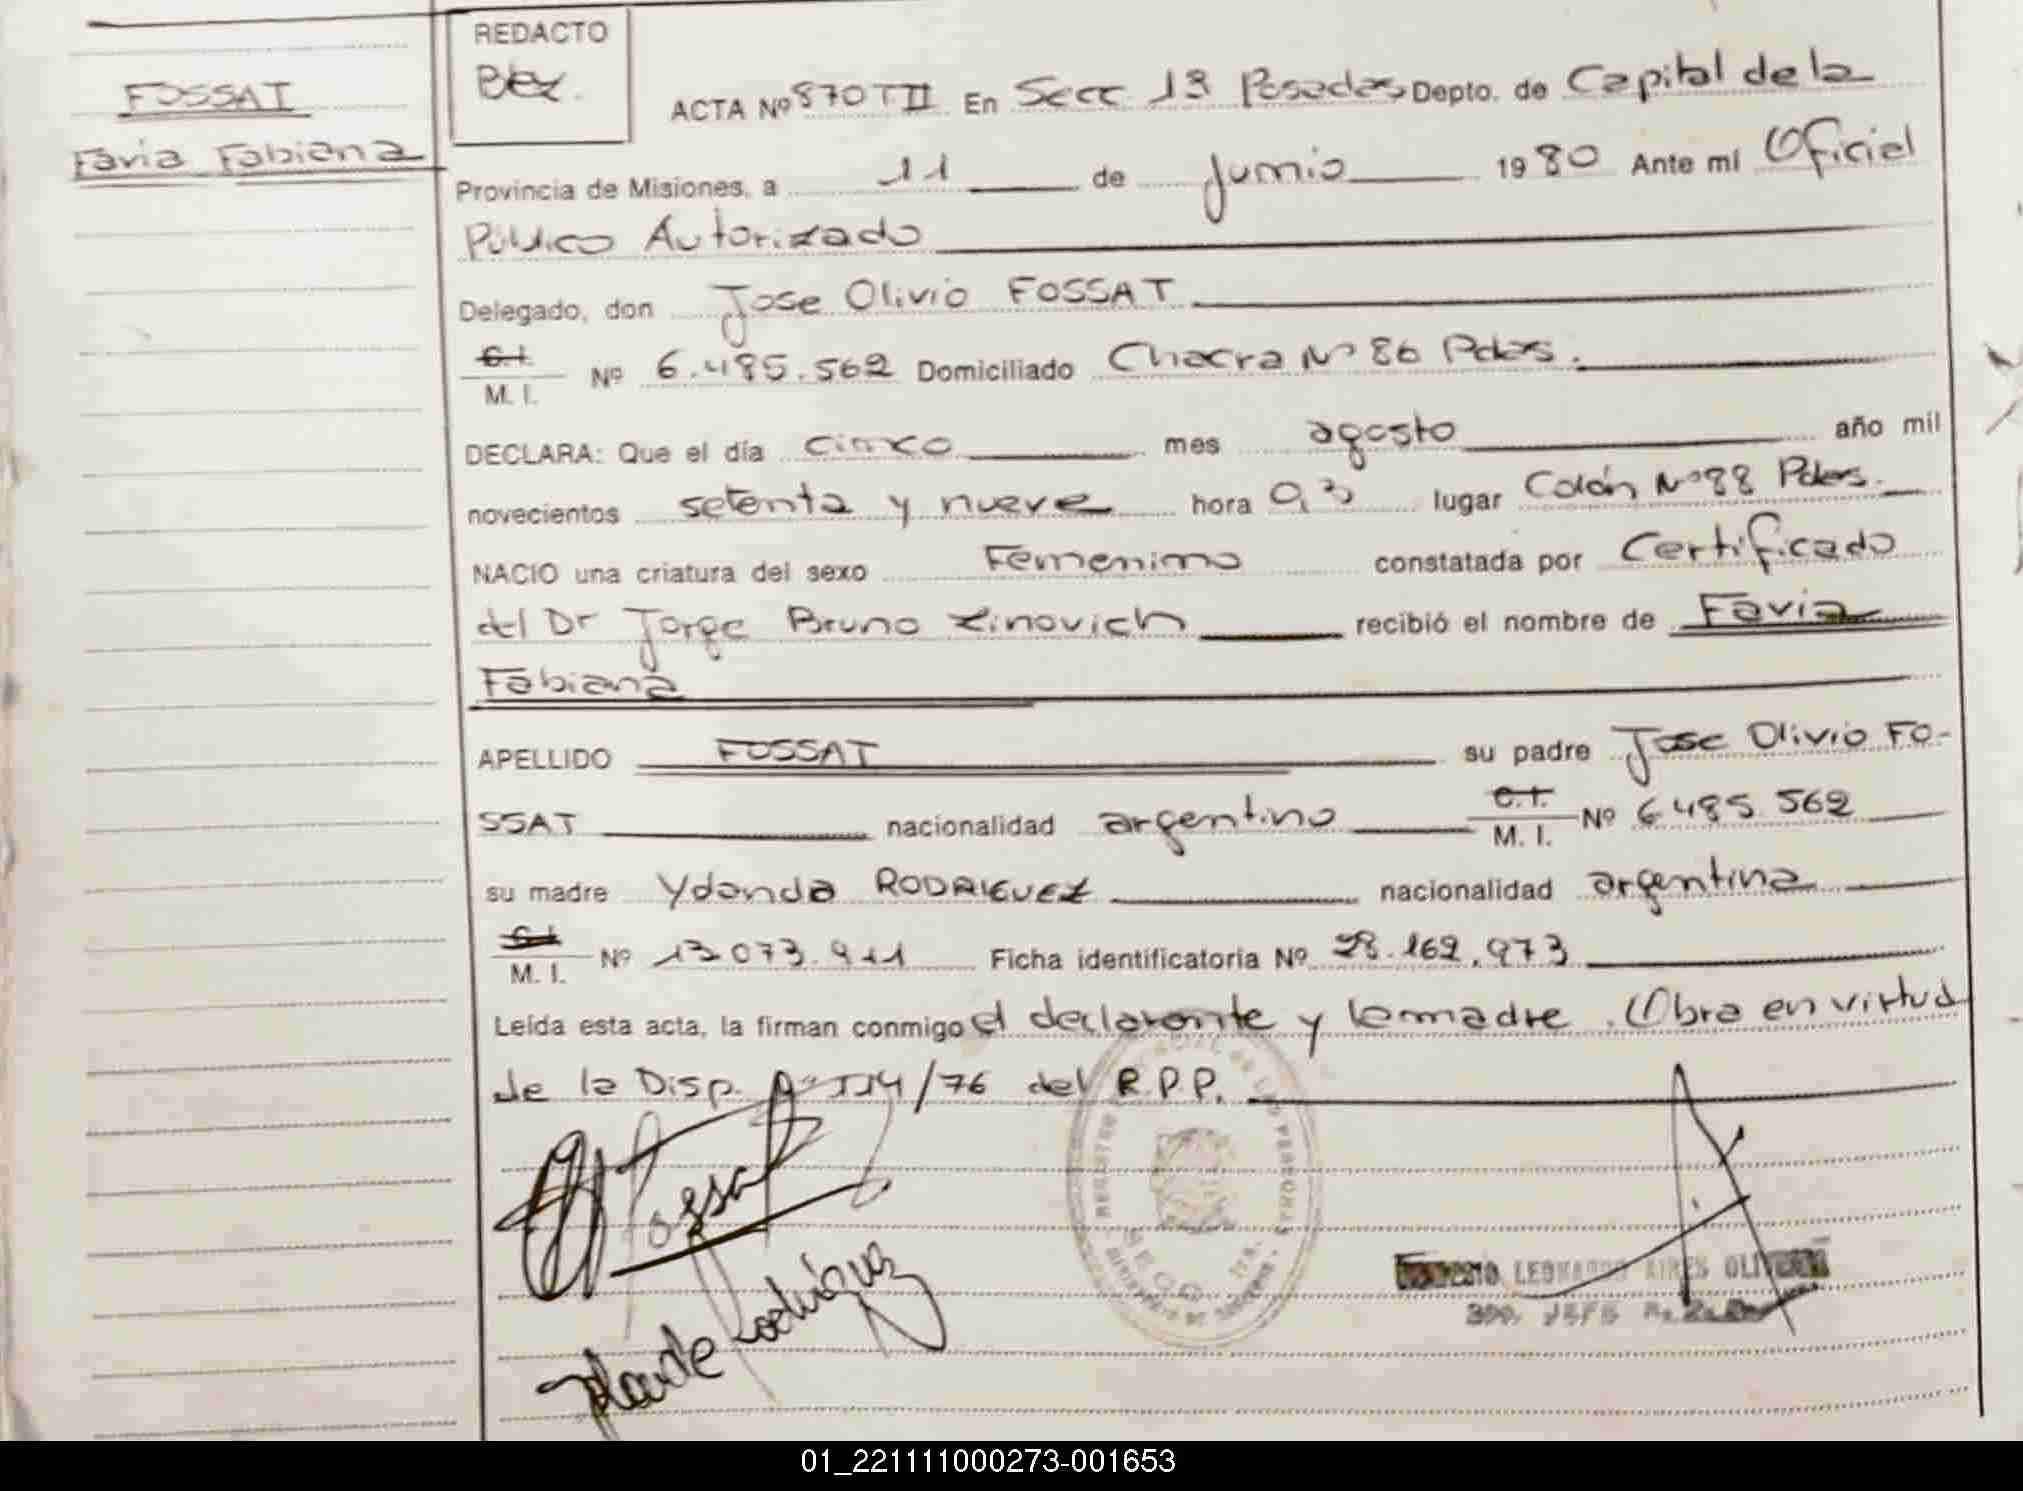 FOSSAT
Favia Fabiana
REDACTO
ACTA Nº 870 TII En Secc 13 Posadas Depto. de Capital de la
Provincia de Misiones, a 11 de Junio 1980 Ante mí Oficial
Público Autorizado
Delegado, don Jose Olivio FOSSAT
C.I.
M. I. Nº 6.485.562 Domiciliado Chacra Nº 86 Pdas.
DECLARA: Que el día cinco mes agosto año mil
novecientos setenta y nueve hora 0,3 lugar Colón Nº 88 Pdas.
NACIO una criatura del sexo Femenino constatada por Certificado
del Dr Jorge Bruno Zinovich recibió el nombre de Favia
Fabiana
APELLIDO FOSSAT su padre Jose Olivio FO-
SSAT nacionalidad argentino C.I. M. I. Nº 6.485.562
su madre Yolanda RODRIGUEZ nacionalidad argentina
C.I.
M. I. Nº 13.073.911 Ficha identificatoria Nº 28.162.973
Leída esta acta, la firman conmigo el declarante y la madre. Obra en virtud
de la Disp. Nº 114/76 del R.P.P.
Fossat
Rodríguez
REGISTRO PROVINCIAL DE LAS PERSONAS
LEONARDO AIRES OLIVEIRA
JEFE
01_221111000273-001653